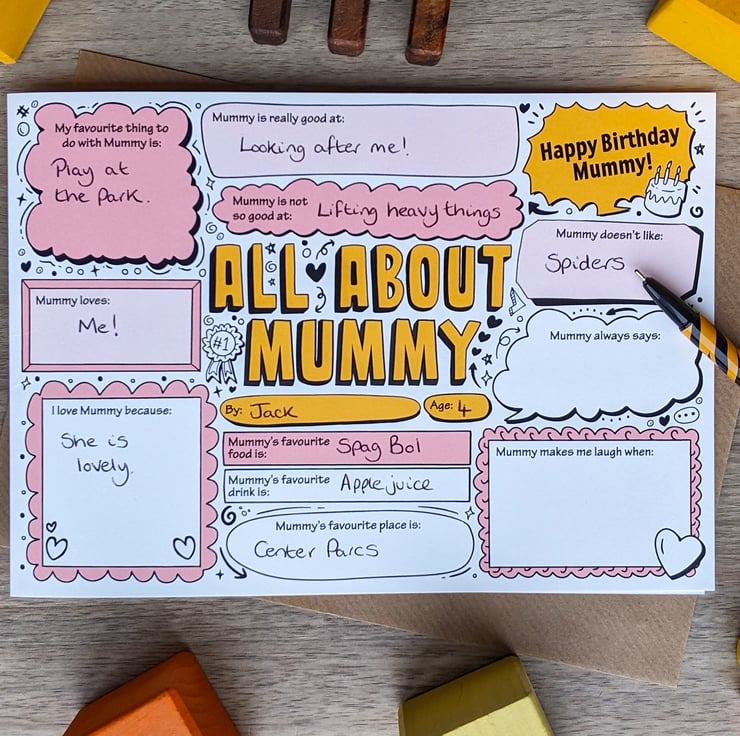 My favourite thing to
do with Mummy is:
Play at
the Park.
Mummy is really good at:
Looking after me!
Mummy is not
so good at: Lifting heavy things
Happy Birthday
Mummy!
Mummy doesn't like:
Spiders
Mummy loves:
Me!
ALL ABOUT
#1 MUMMY
Mummy always says:
By: Jack
Age: 4
I love Mummy because:
She is
lovely.
Mummy's favourite
food is: Spag Bol
Mummy's favourite
drink is: Apple juice
Mummy's favourite place is:
Center Parcs
Mummy makes me laugh when: